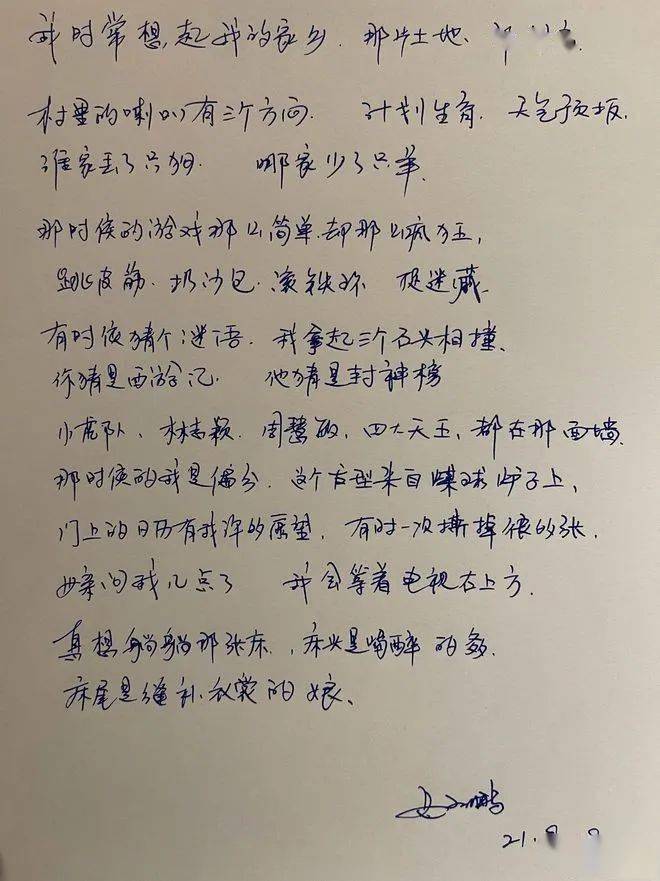 我时常想起我的家乡.那片土地、
村里的喇叭有三个方向. 计划生育. 天气预报.
谁家丢了只狗. 哪家少了只羊.
那时候的游戏那么简单.却那么疯狂,
跳皮筋.扔沙包.滚铁环 捉迷藏.
有时候猜个谜语. 我拿起三个石头相撞、
你猜是西游记. 他猜是封神榜
小虎队、林志颖.周慧敏,四大天王,都在那面墙.
那时候的我是偏分.这个发型来自煤球炉子上,
门上的日历有我许的愿望,有时一次撕掉很多张.
母亲问我几点了 我会等着电视右上方.
真想躺躺那张床.,床头是喝醉的爹.
床尾是缝补衣裳的娘、
21.9